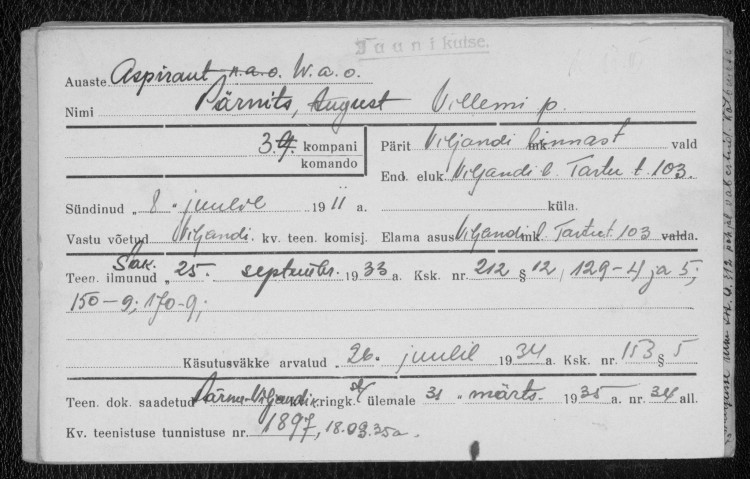 Taunikutse.
Auaste Aspirant n.a.o. W.a.o.
Nimi Pärnits, August Villemi p.
3. 9. kompani
komando
Pärit Viljandi linnast mk. vald
End. eluk. Viljandi l. Tartu t. 103.
küla.
Sündinud „ 8 " juulil 1911 a.
Vastu võetud Viljandi kv. teen. komisj.
Elama asus Viljandi l. mk. Tartu t. 103 valda.
Sak.
Teen. ilmunud „ 25. septembr. 1933 a. Ksk. nr. 212 § 12, 129-4 ja 5;
150-9; 170-9;
Käsutusväkke arvatud „ 26. juulil 1934 a. Ksk. nr. 153 § 5
Teen. dok. saadetud Pärnu-Viljandi kringk. ülemale 31 " märts. 1935 a. nr. 34 all.
Kv. teenistuse tunnistuse nr. 1897, 18.03.35a.